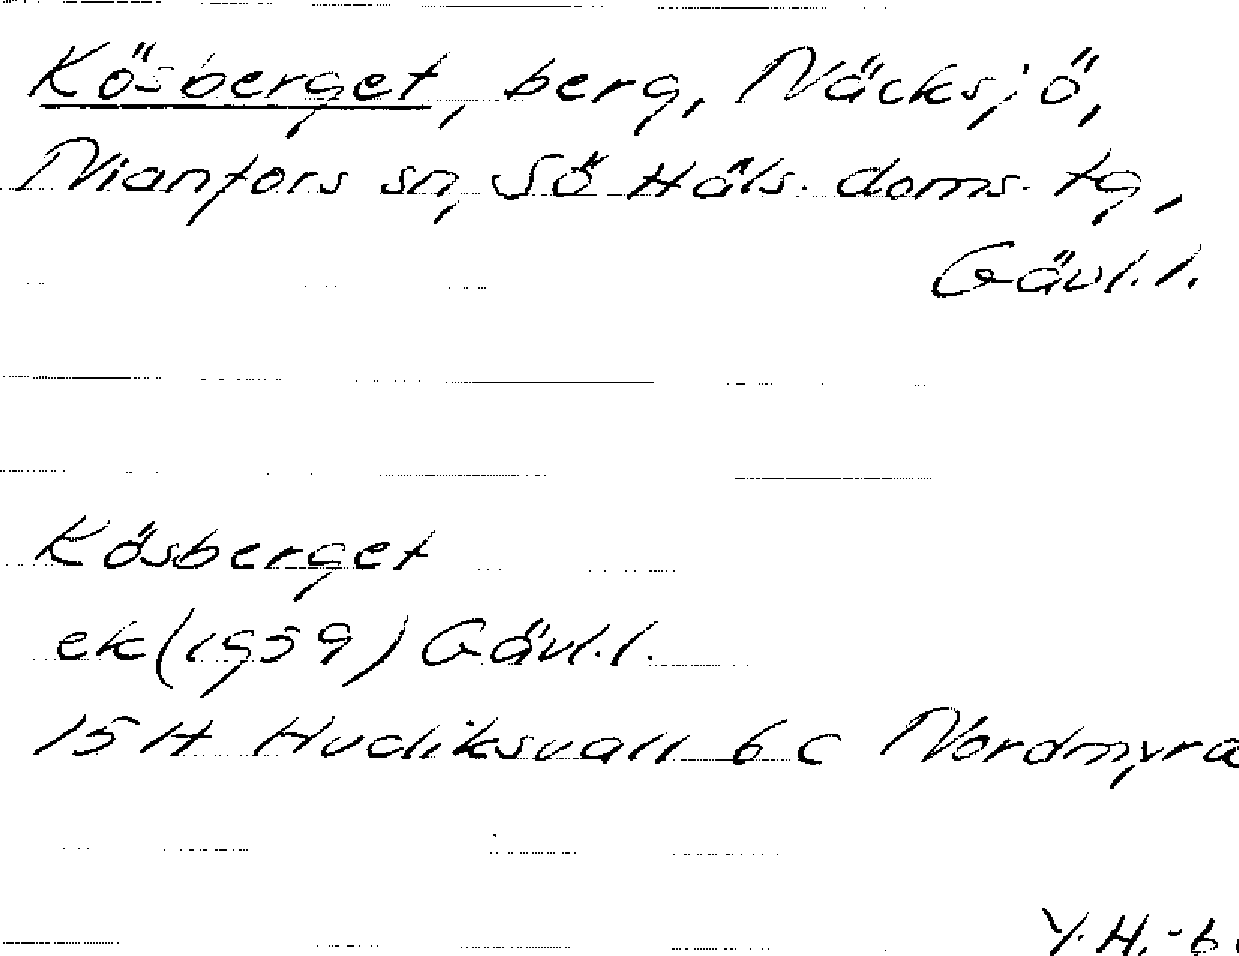 Kösberget, berg, Näcksjö,
Nianfors sn, Sö Häls. doms. tg,
Gävl. l.
Kösberget
ek (1959) Gävl. l.
15 H Hudiksvall 6 c Nordmyra
Y. H. -6